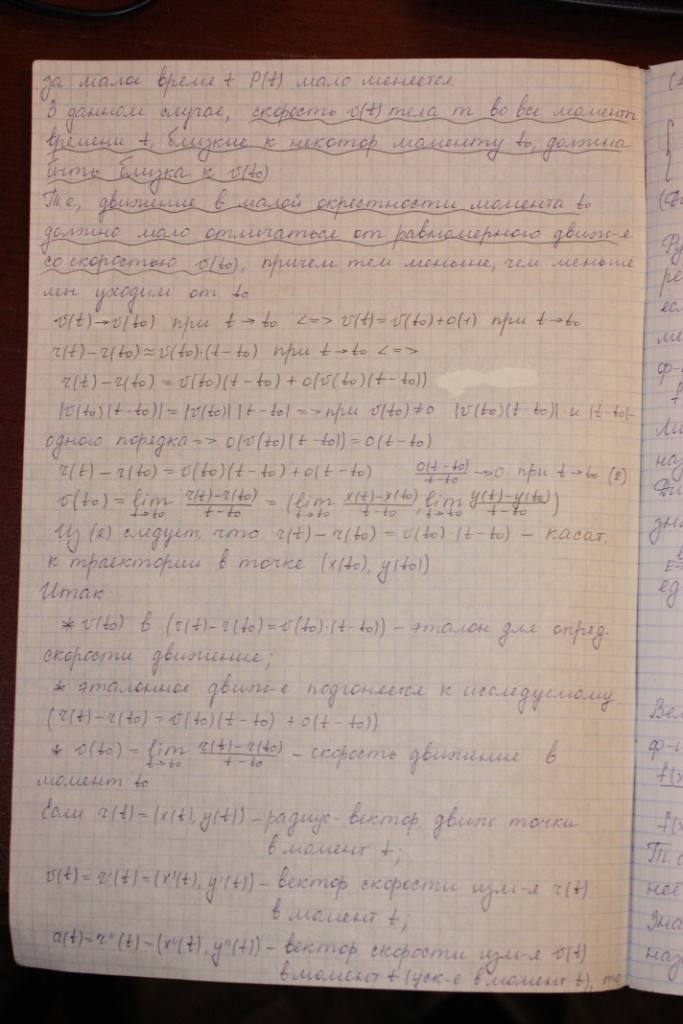 за малое время t P(t) мало меняется
В данном случае, скорость v(t) тела m во все моменты
времени t, близкие к некотор моменту t₀, должна
быть близка к v(t₀)
Т е, движение в малой окрестности момента t₀
должно мало отличаться от равномерного движ-я
со скоростью v(t₀), причем тем меньше, чем меньше
мы уходим от t₀
v(t)→v(t₀) при t→t₀ <=> v(t)=v(t₀)+o(1) при t→t₀
r(t)-r(t₀)≈v(t₀)·(t-t₀) при t→t₀ <=>
r(t)-r(t₀) = v(t₀)(t-t₀) + o(v(t₀)(t-t₀))
|v(t₀)(t-t₀)| = |v(t₀)| |t-t₀| => при v(t₀)≠0 |v(t₀)(t-t₀)| и |t-t₀|-
одного порядка => o(v(t₀)(t-t₀)) = o(t-t₀)
r(t)-r(t₀) = v(t₀)(t-t₀) + o(t-t₀) o(t-t₀)/(t-t₀) →0 при t→t₀ (2)
v(t₀) = lim t→t₀ (r(t)-r(t₀))/(t-t₀) = (lim t→t₀ (x(t)-x(t₀))/(t-t₀), lim t→t₀ (y(t)-y(t₀))/(t-t₀))
Из (2) следует, что r(t)-r(t₀) = v(t₀)·(t-t₀) - касат.
к траектории в точке (x(t₀), y(t₀))
Итак
* v(t₀) в (r(t)-r(t₀)=v(t₀)·(t-t₀)) - эталон для опред.
скорости движение;
* эталонное движ-е подгоняется к исследуемому
(r(t)-r(t₀) = v(t₀)(t-t₀) + o(t-t₀))
* v(t₀) = lim t→t₀ (r(t)-r(t₀))/(t-t₀) - скорость движение в
момент t₀
Если r(t)=(x(t), y(t)) - радиус-вектор движ точки
в момент t;
v(t)=r'(t)=(x'(t), y'(t)) - вектор скорости изм-я r(t)
в момент t;
a(t)=r''(t)=(x''(t), y''(t)) - вектор скорости изм-я v(t)
в момент t (уск-е в момент t), то